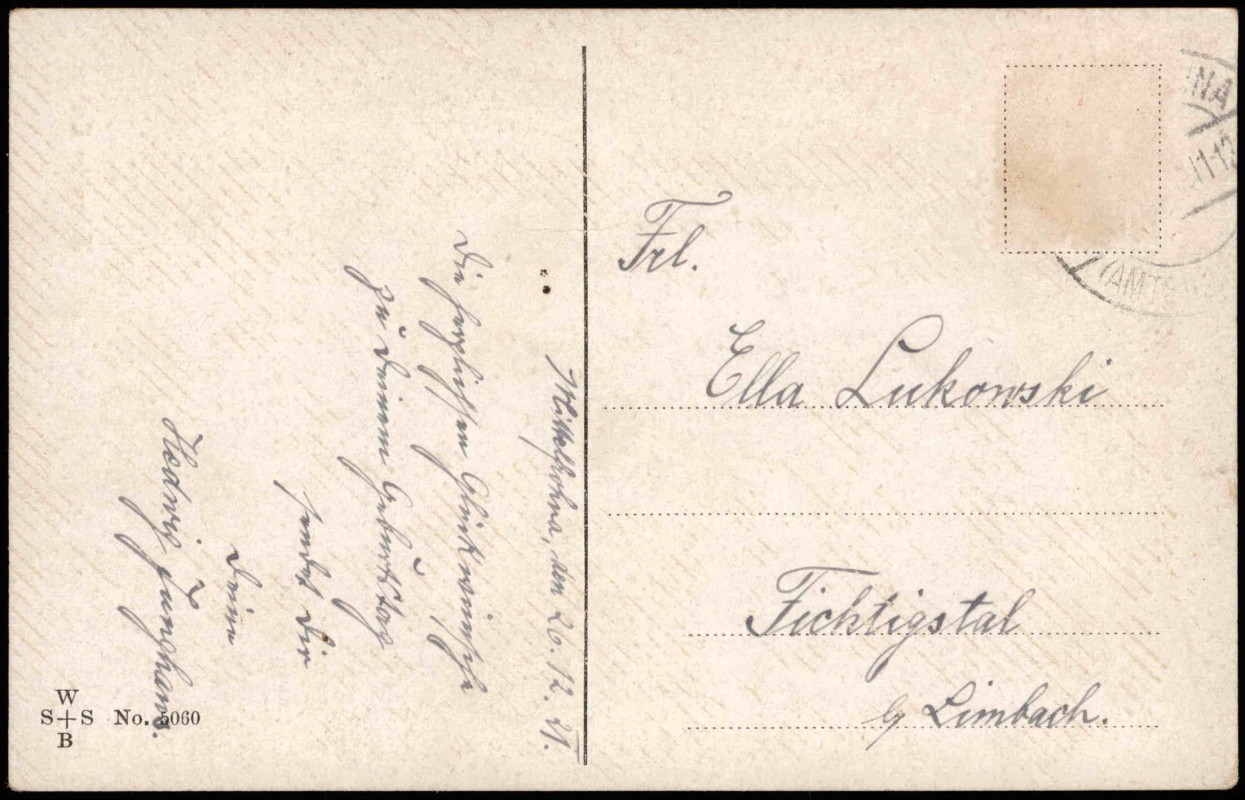 Mittelfrohna, den 26. 12. 21.
Die herzlichsten Glückwünsche
zu Deinem Geburtstag
sendet Dir
Deine
Hedwig Junghans.
Frl.
Ella Lukowski
Fichtigstal
b/ Limbach.
W
S+S No. 5060
B
11-12
(AMTSH